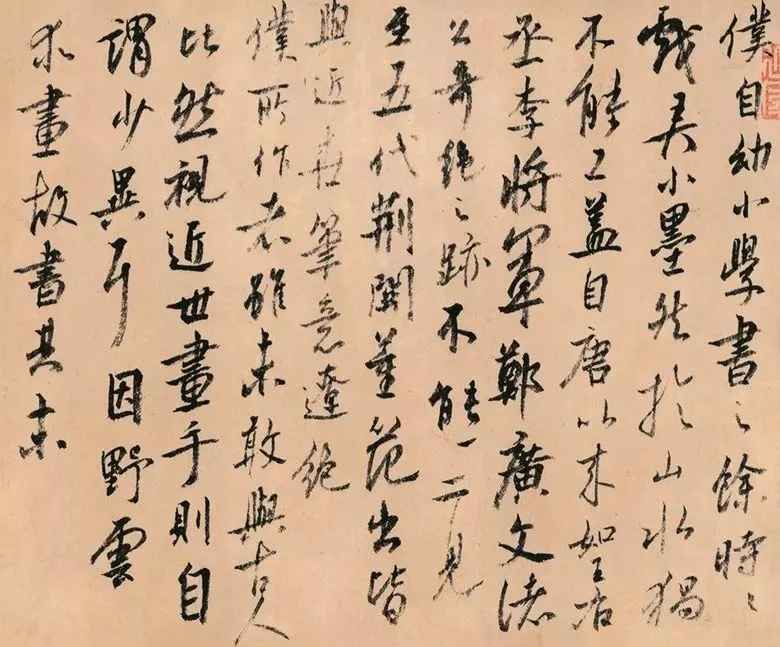 僕自幼小學書之餘時〻
戲弄小墨然於山水獨
不能工蓋自唐以來如王右
丞李將軍鄭廣文諸
公奇絕之跡不能一二見
至五代荊關董范出皆
與近世筆意遼絕
僕所作者雖未敢與古人
比然視近世畫手則自
謂少異耳因野雲
求畫故書其末